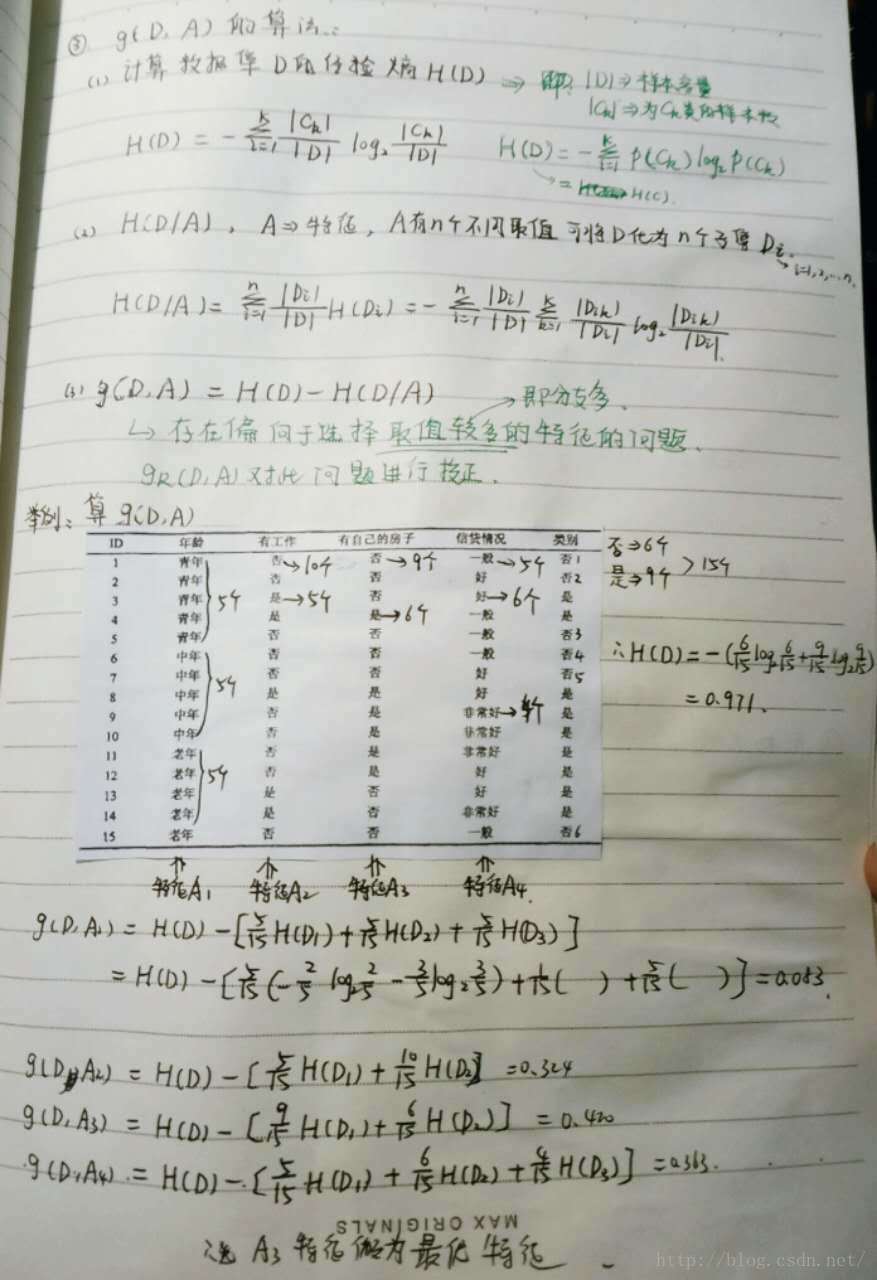 ③ g(D,A)的算法::
(1) 计算数据集D的经验熵H(D) ⇒ 即: |D|⇒样本容量
|Ck|⇒为Ck类的样本数
H(D) = - Σ(i=1→k) |Ck|/|D| log₂ |Ck|/|D|   H(D) = - Σ P(Ck)log₂P(Ck)
= H(C).
(2) H(D/A), A⇒特征, A有n个不同取值 可将D化为n个子集Di.
i=1,2,...n.
H(D/A) = Σ(i=1→n) |Di|/|D| H(Di) = - Σ(i=1→n) |Di|/|D| Σ(k=1→k) |Dik|/|Di| log₂ |Dik|/|Di|.
(3) g(D,A) = H(D) - H(D/A) → 即分支多.
↳ 存在偏向于选择取值较多的特征的问题.
gR(D,A)对此问题进行校正.
举例: 算g(D,A)
ID 年龄 有工作 有自己的房子 信贷情况 类别
1 青年 否→10个 否→9个 一般→5个 否1
2 青年 否 否 好 否2
3 青年 是→5个 否 好→6个 是
4 青年 是 是→6个 一般 是
5 青年 否 否 一般 否3
6 中年 否 否 一般 否4
7 中年 否 否 好 否5
8 中年 是 是 好 是
9 中年 否 是 非常好→4个 是
10 中年 否 是 非常好 是
11 老年 否 是 非常好 是
12 老年 否 是 好 是
13 老年 是 否 好 是
14 老年 是 否 非常好 是
15 老年 否 否 一般 否6
5个
5个
5个
否⇒6个
是⇒9个 >15个
∴H(D) = -(6/15 log₂ 6/15 + 9/15 log₂ 9/15)
= 0.971.
特征A1 特征A2 特征A3 特征A4.
g(D,A1) = H(D) - [5/15 H(D1) + 5/15 H(D2) + 5/15 H(D3)]
= H(D) - [5/15 (-2/5 log₂ 2/5 - 3/5 log₂ 3/5) + 5/15 ( ) + 5/15 ( )] = 0.083.
g(D,A2) = H(D) - [5/15 H(D1) + 10/15 H(D2)] = 0.324
g(D,A3) = H(D) - [9/15 H(D1) + 6/15 H(D2)] = 0.420
g(D,A4) = H(D) - [5/15 H(D1) + 6/15 H(D2) + 4/15 H(D3)] = 0.363.
MAX ORIGINALS
选A3特征做为最优特征
http://blog.csdn.net/